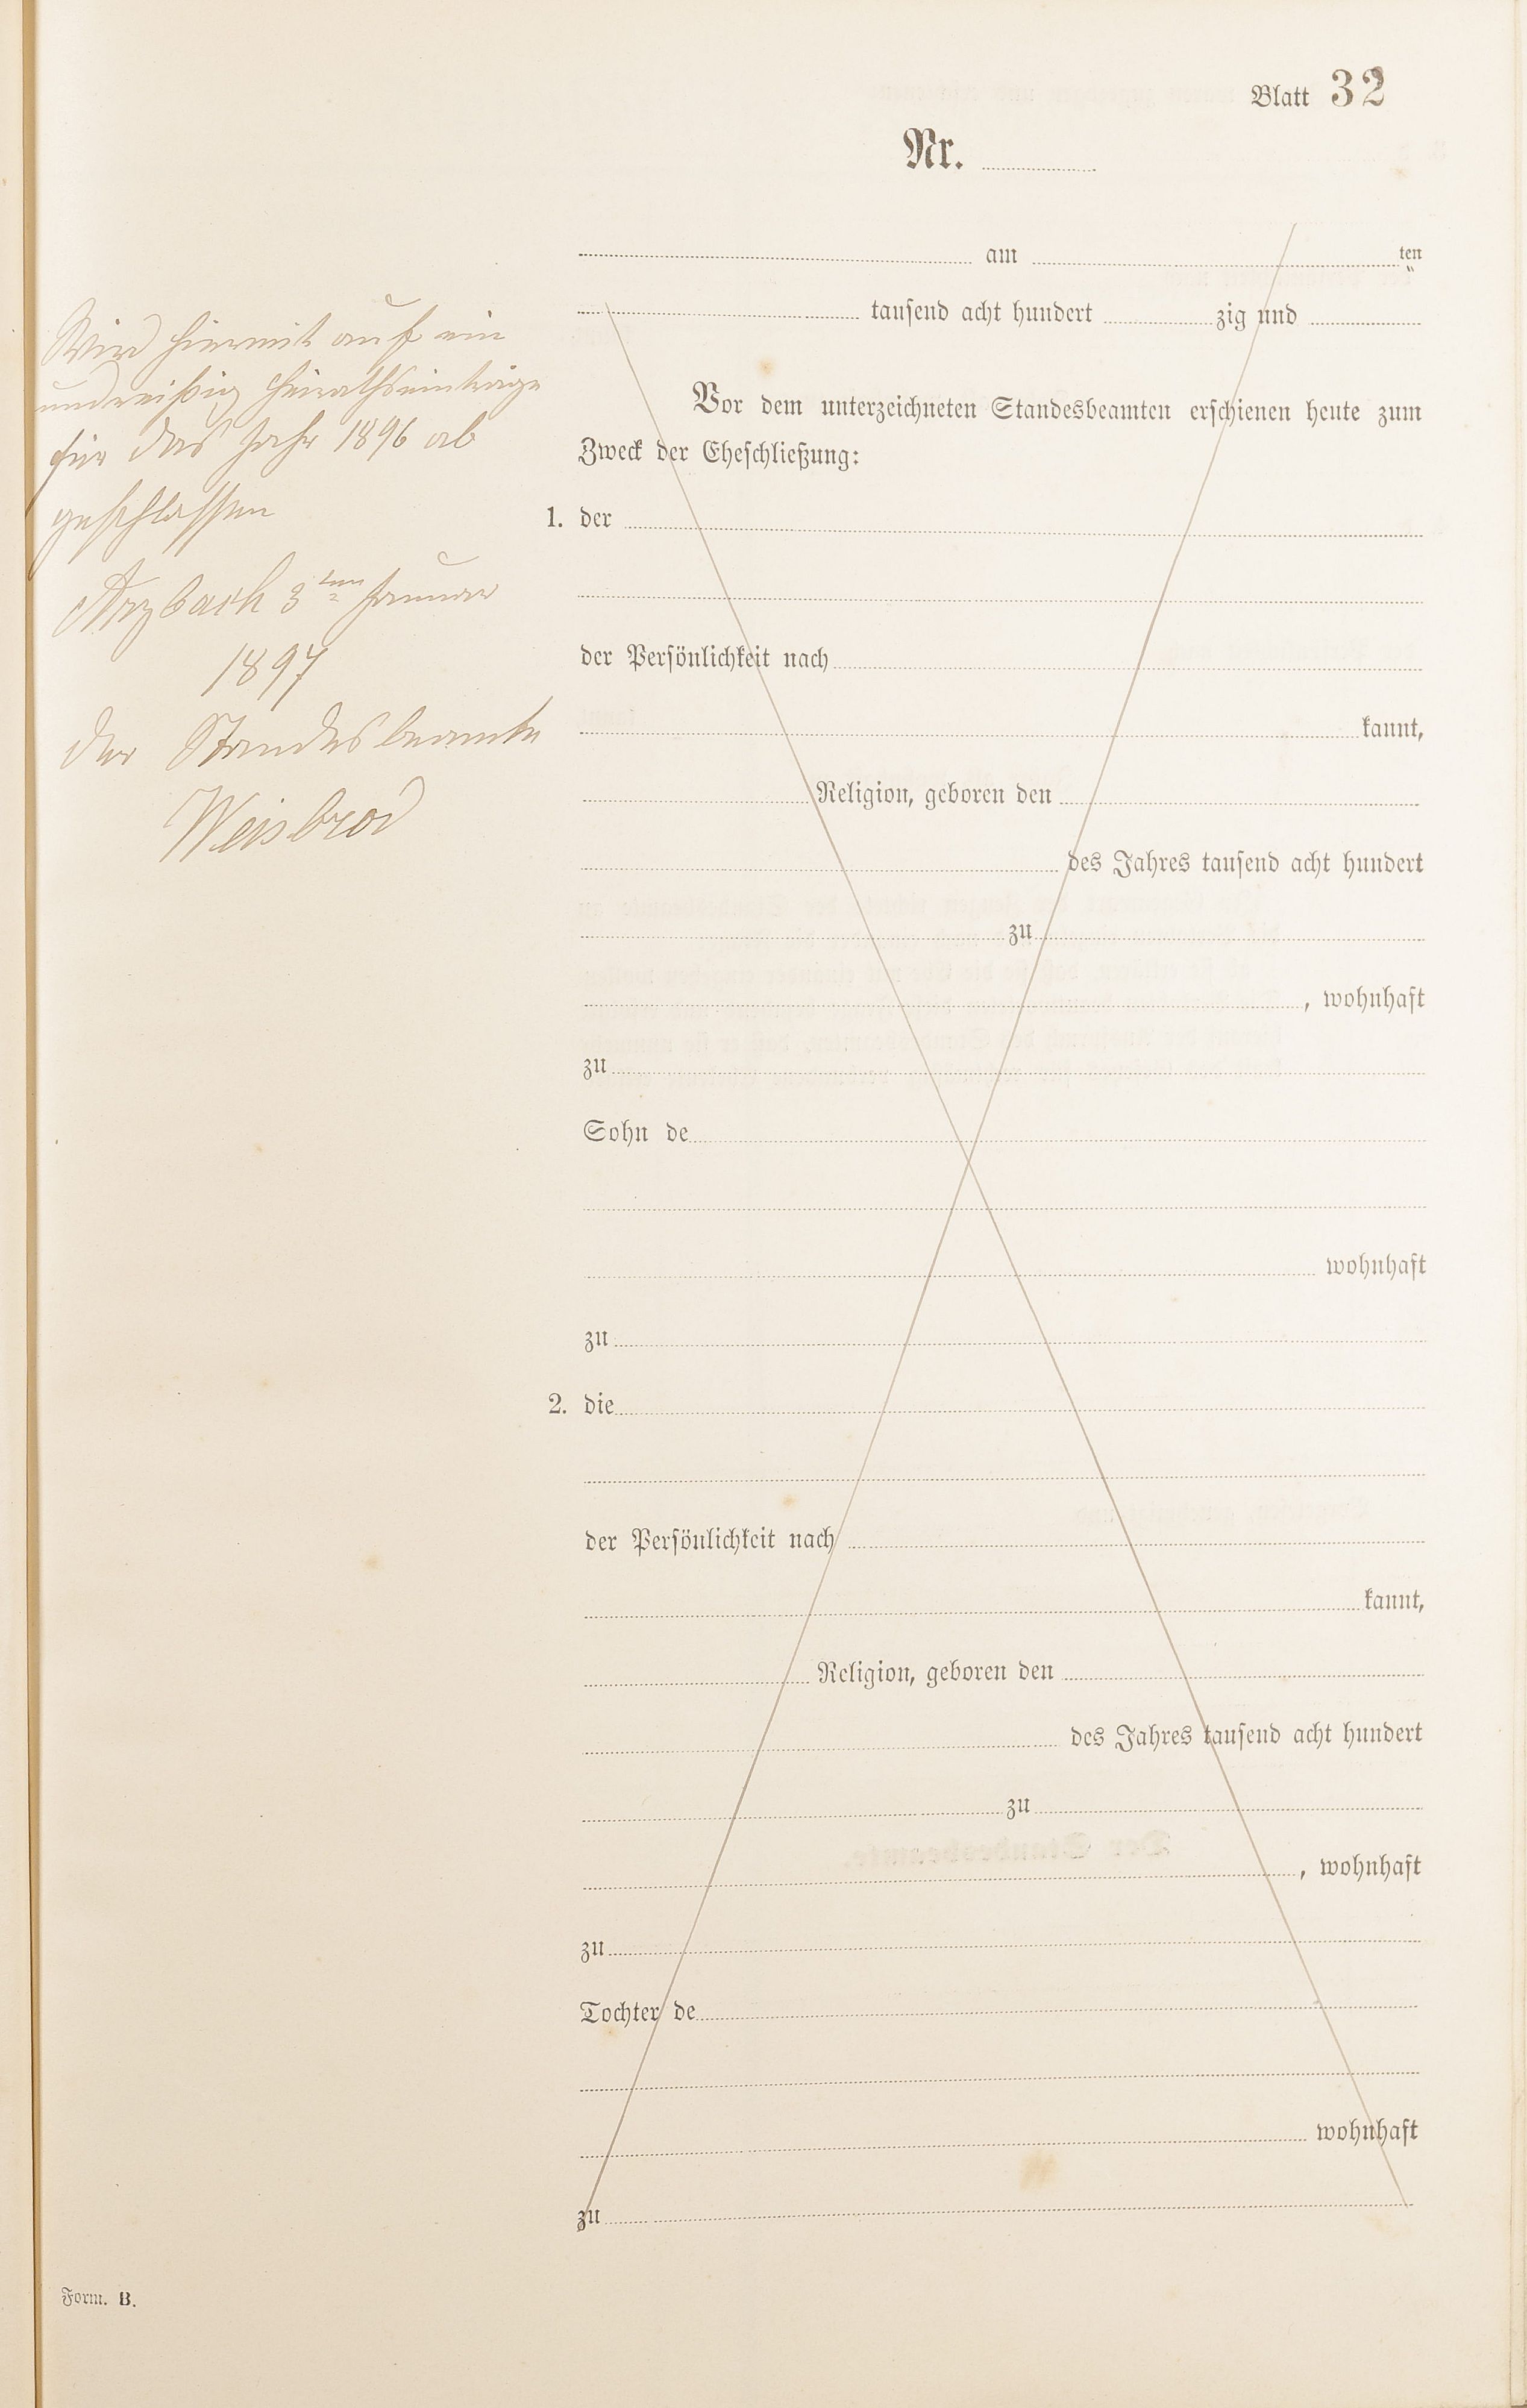 Blatt 32
Nr.
am ten
tausend acht hundert zig und
Vor dem unterzeichneten Standesbeamten erschienen heute zum
Zweck der Eheschließung:
1. der
der Persönlichkeit nach
kannt,
Religion, geboren den
des Jahres tausend acht hundert
zu
, wohnhaft
zu
Sohn de
wohnhaft
zu
2. die
der Persönlichkeit nach
kannt,
Religion, geboren den
des Jahres tausend acht hundert
zu
, wohnhaft
zu
Tochter de
wohnhaft
zu
Wird hiermit auf ein
undreißig Heirathseinträge
für das Jahr 1896 ab
geschlossen
Arzbach 3ten Januar
1897
Der Standesbeamte
Weisbrod
Form. B.